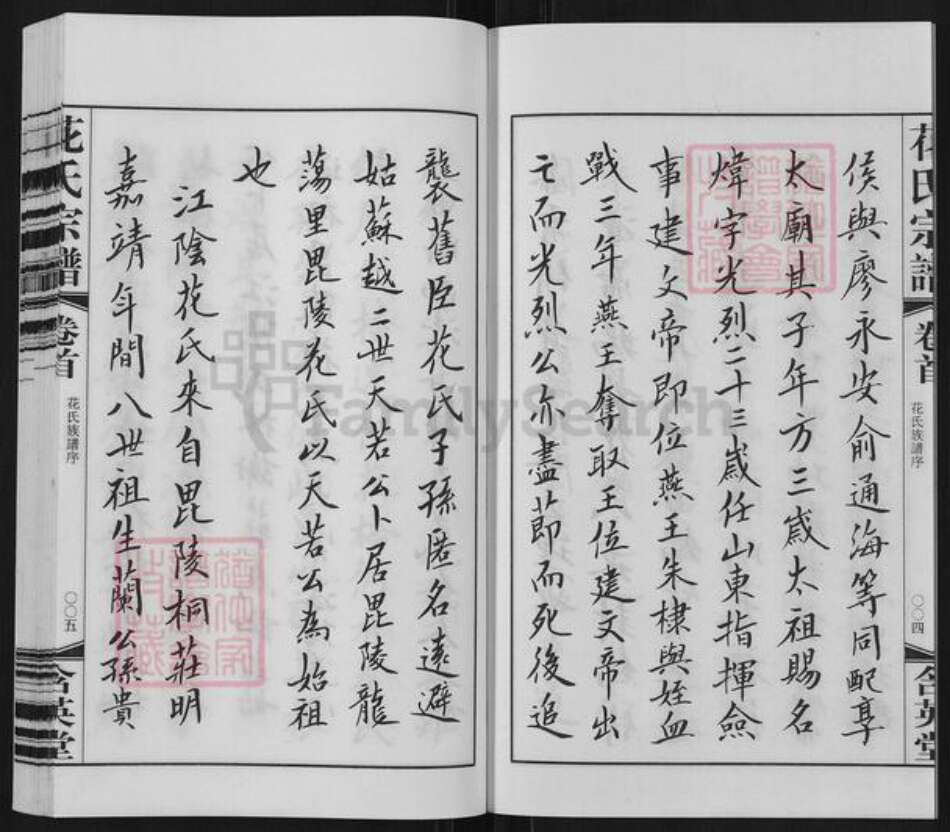 花氏宗譜
卷首
花氏族譜序
〇〇四
含英堂
侯與廖永安俞通海等同配享
太廟其子年方三歲太祖賜名
煒字光烈二十三歲任山東指揮僉
事建文帝即位燕王朱棣與姪血
戰三年燕王奪取王位建文帝出
亡而光烈公亦盡節而死後追
襲舊臣花氏子孫匿名遠避
姑蘇越二世天若公卜居毘陵龍
蕩里毘陵花氏以天若公為始祖
也
江陰花氏來自毘陵桐莊明
嘉靖年間八世祖生蘭公孫貴
花氏宗譜
卷首
花氏族譜序
〇〇五
含英堂
FamilySearch